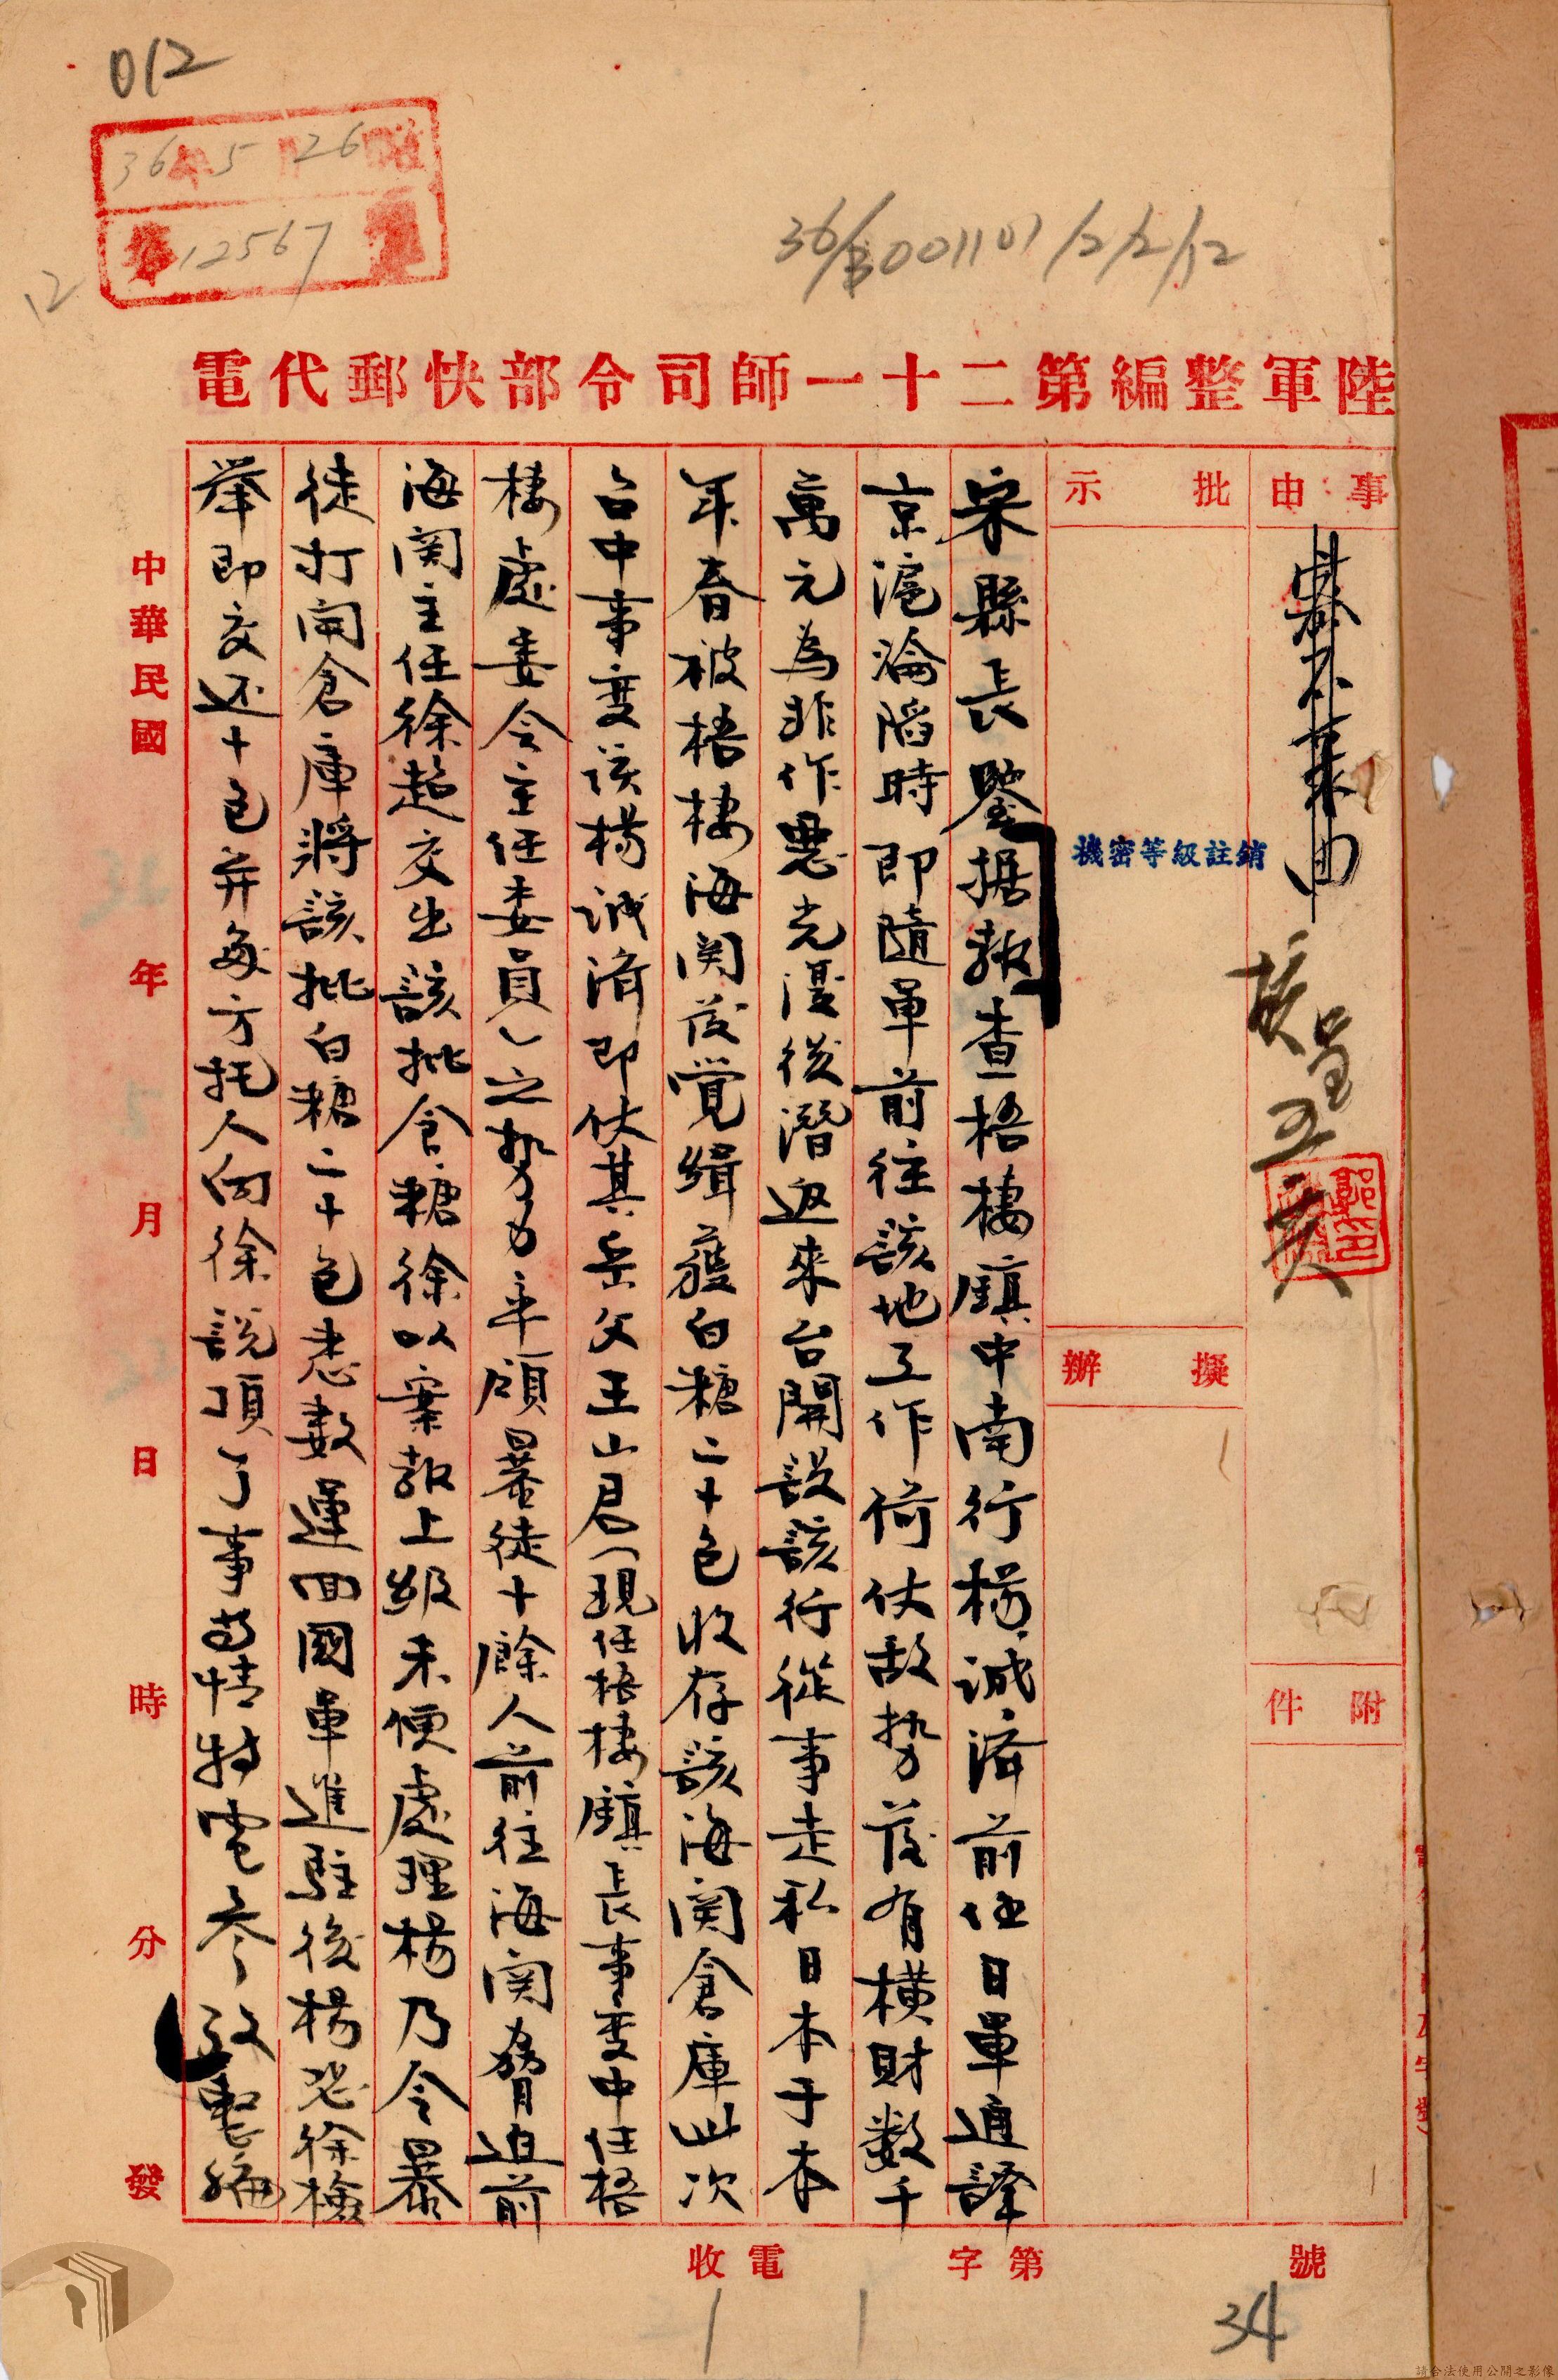 012
36年5月26收
第12567號
12
36/301101/2/2/12
陸軍整編第二十一師司令部快郵代電
事由
核呈
附件
批示
機密等級註銷
擬辦
宋縣長鑒据報查梧棲鎮中南行楊诚濟前任日軍通譯
京滬淪陷時即隨軍前往該地工作倚仗敌势茂有横財数千
萬元為非作悪光復後潛返來台開設該行從事走私日本于本
年春被梧棲海関茂覚緝獲白糖二十包收存該海関倉庫此次
台中事变该楊诚濟即仗其岳父王山君(現任梧棲鎮長事变中任梧
棲處委会主任委員)之势力率領暴徒十餘人前往海関脅迫前
海関主任徐超交出該批食糖徐以案報上级未便處理楊乃令暴
徒打開倉庫將該批白糖二十包悉數運回國軍進駐後楊恐徐檢
举即交还十包并每方托人向徐說項了事等情特電参考整編
中華民國 年 月 日 時 分 發
第 字 號
電收
34
請合法使用公開之影像